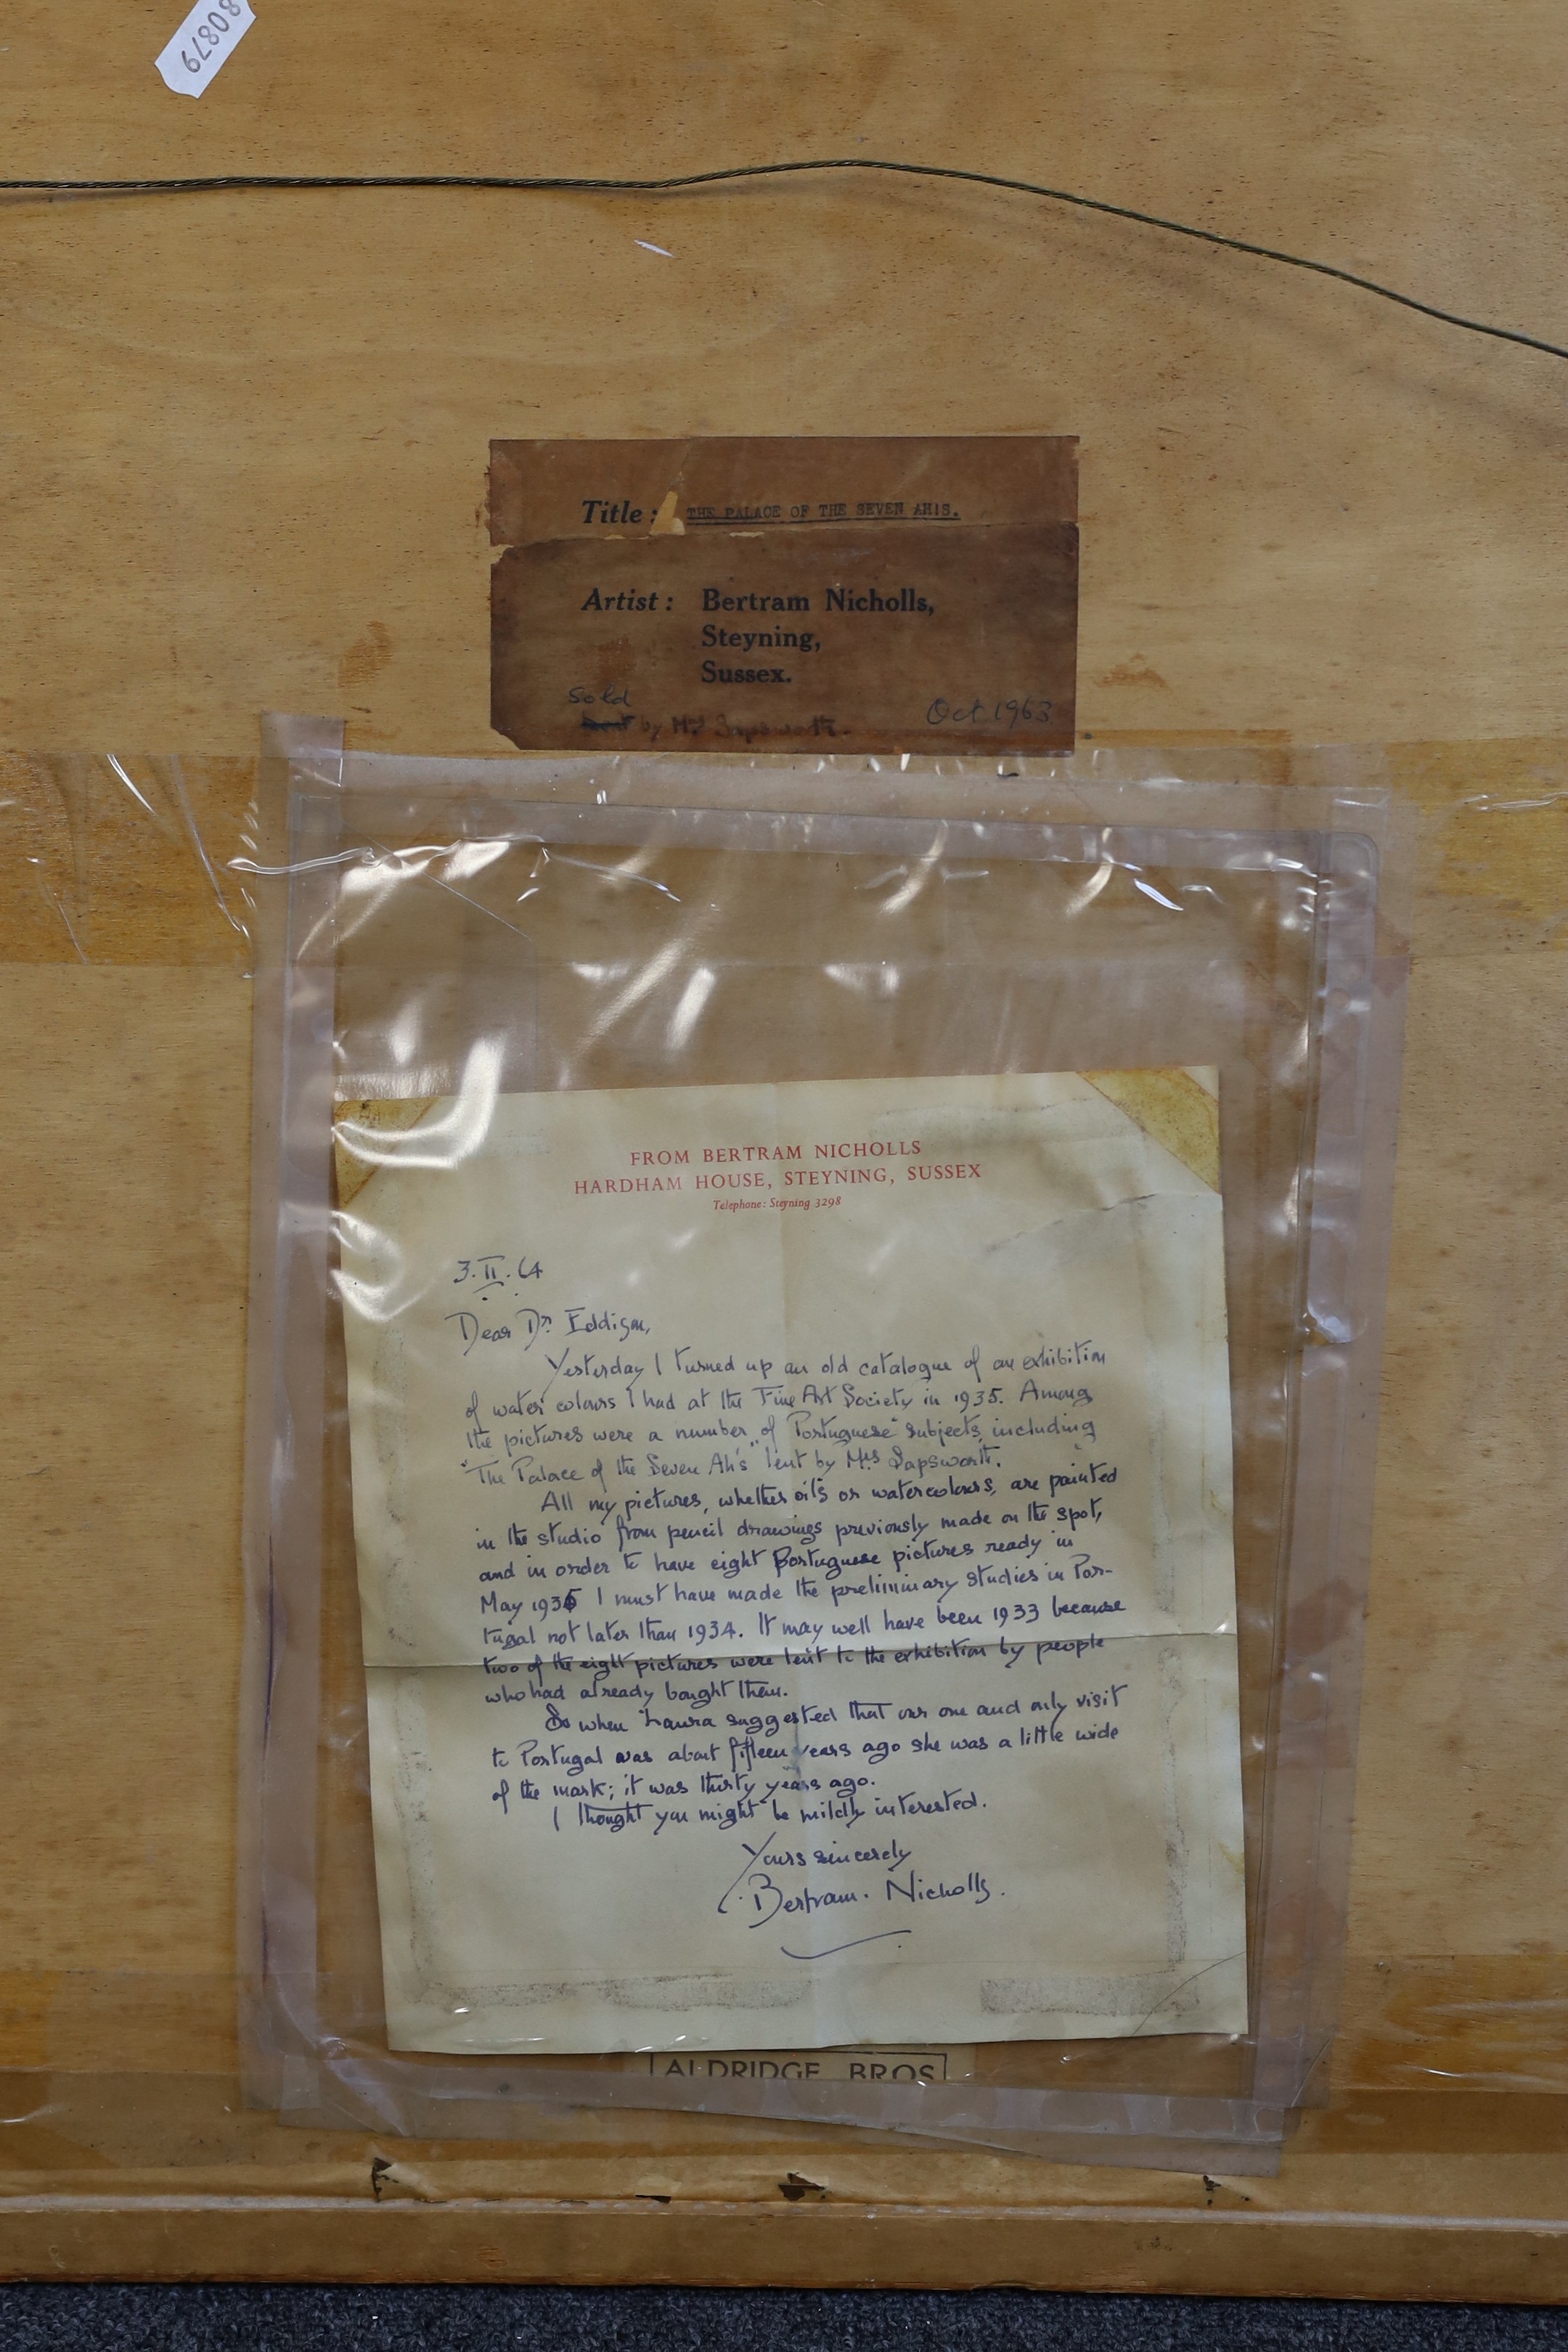 80879
Title: THE PALACE OF THE SEVEN AHS.
Artist: Bertram Nicholls,
Steyning,
Sussex.
Sold
by Mrs Sapsworth.
Oct 1963
FROM BERTRAM NICHOLLS
HARDHAM HOUSE, STEYNING, SUSSEX
Telephone: Steyning 3298
3.II.64
Dear Dr. Eddison,
Yesterday I turned up an old catalogue of an exhibition
of water colours I had at the Fine Art Society in 1935. Among
the pictures were a number of Portuguese subjects, including
"The Palace of the Seven Ah's" lent by Mrs Sapsworth.
All my pictures, whether oils or watercolours, are painted
in the studio from pencil drawings previously made on the spot,
and in order to have eight Portuguese pictures ready in
May 1935 I must have made the preliminary studies in Por-
tugal not later than 1934. It may well have been 1933 because
two of the eight pictures were lent to the exhibition by people
who had already bought them.
So when Laura suggested that our one and only visit
to Portugal was about fifteen years ago she was a little wide
of the mark; it was thirty years ago.
I thought you might be mildly interested.
Yours sincerely
Bertram. Nicholls.
ALDRIDGE BROS